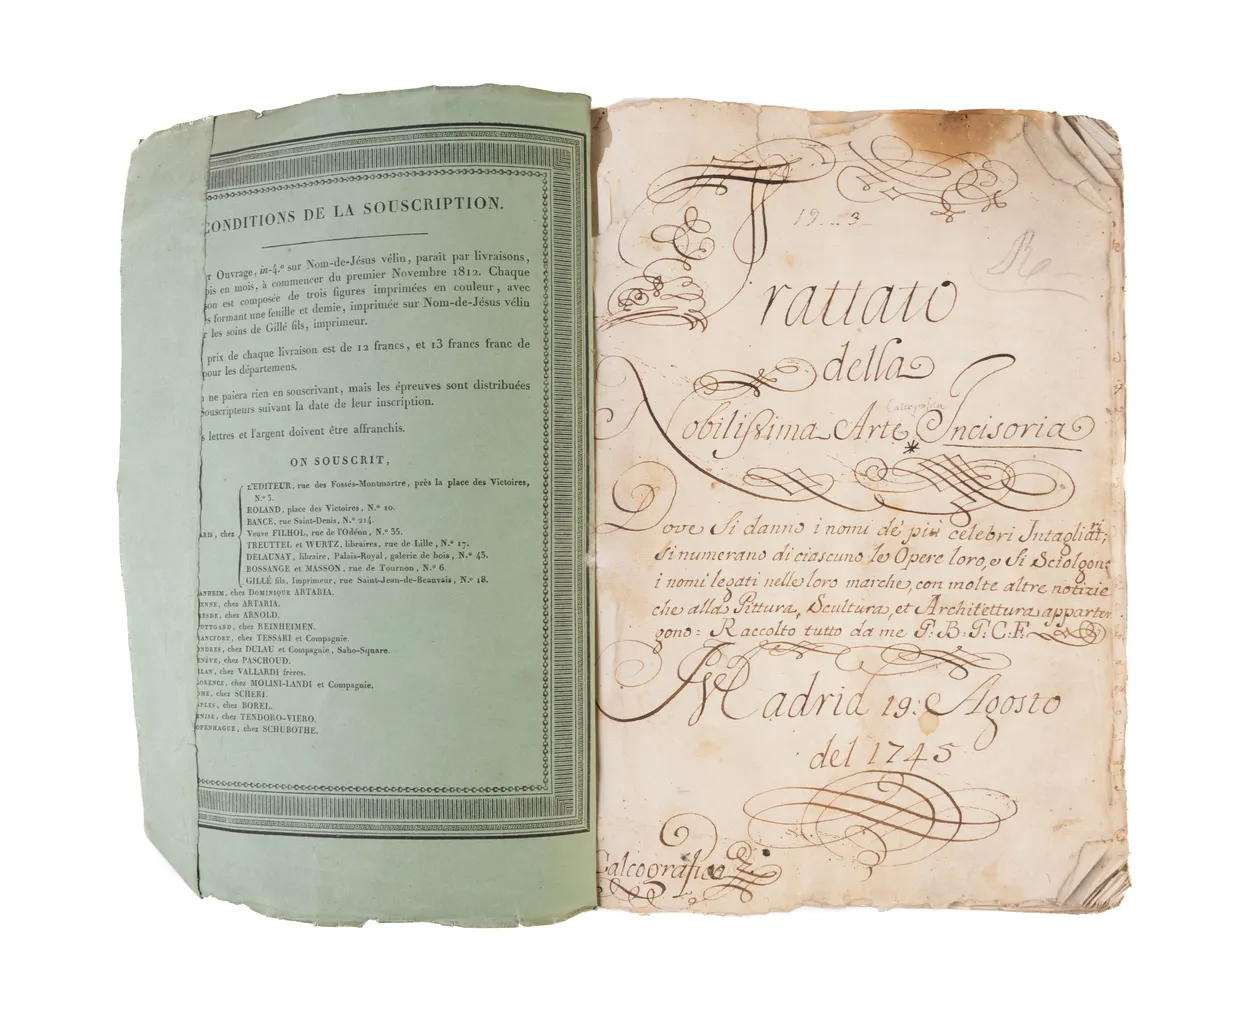 CONDITIONS DE LA SOUSCRIPTION.
Ouvrage, in-4.º sur Nom-de-Jésus vélin, paraît par livraisons,
en mois, à commencer du premier Novembre 1812. Chaque
est composée de trois figures imprimées en couleur, avec
formant une feuille et demie, imprimée sur Nom-de-Jésus vélin
les soins de Gillé fils, imprimeur.
prix de chaque livraison est de 12 francs, et 13 francs franc de
pour les départemens.
ne paiera rien en souscrivant, mais les épreuves sont distribuées
souscripteurs suivant la date de leur inscription.
lettres et l'argent doivent être affranchis.
ON SOUSCRIT,
L'EDITEUR, rue des Fossés-Montmartre, près la place des Victoires,
N.º 3.
ROLAND, place des Victoires, N.º 10.
BANCE, rue Saint-Denis, N.º 214.
ARIS, chez Veuve FILHOL, rue de l'Odéon, N.º 35.
TREUTTEL et WURTZ, libraires, rue de Lille, N.º 17.
DELAUNAY, libraire, Palais-Royal, galerie de bois, N.º 43.
BOSSANGE et MASSON, rue de Tournon, N.º 6.
GILLÉ fils, Imprimeur, rue Saint-Jean-de-Beauvais, N.º 18.
ANHEIM, chez DOMINIQUE ARTARIA.
ENNE, chez ARTARIA.
ESDE, chez ARNOLD.
UTTGARD, chez REINHEIMEN.
RANCFORT, chez TESSARI et Compagnie.
ONDRES, chez DULAU et Compagnie, Saho-Square.
ENÈVE, chez PASCHOUD.
LAN, chez VALLARDI frères.
LORENCE, chez MOLINI-LANDI et Compagnie.
OME, chez SCHERI.
APLES, chez BOREL.
ENISE, chez TENDORO-VIERO.
OPENHAGUE, chez SCHUBOTHE.
Trattato
della
Calcografica
Nobilissima Arte Incisoria
*
Dove si danno i nomi de' più celebri Intagliatri;
si numerano di ciascuno le Opere loro, e si Sciolgono
i nomi legati nelle loro marche, con molte altre notizie
che alla Pittura, Scultura, et Architettura apparten
gono: Raccolto tutto da me P: B: P: C: F.
Madrid 19: Agosto
del 1745
Calcografica